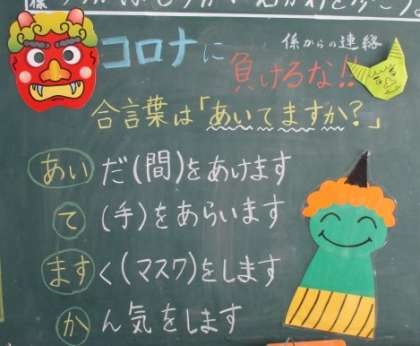 係からの連絡
コロナに
負けるな!!
合言葉は「あいてますか?」
あいだ(間)をあけます
て(手)をあらいます
ますく(マスク)をします
かん気をします